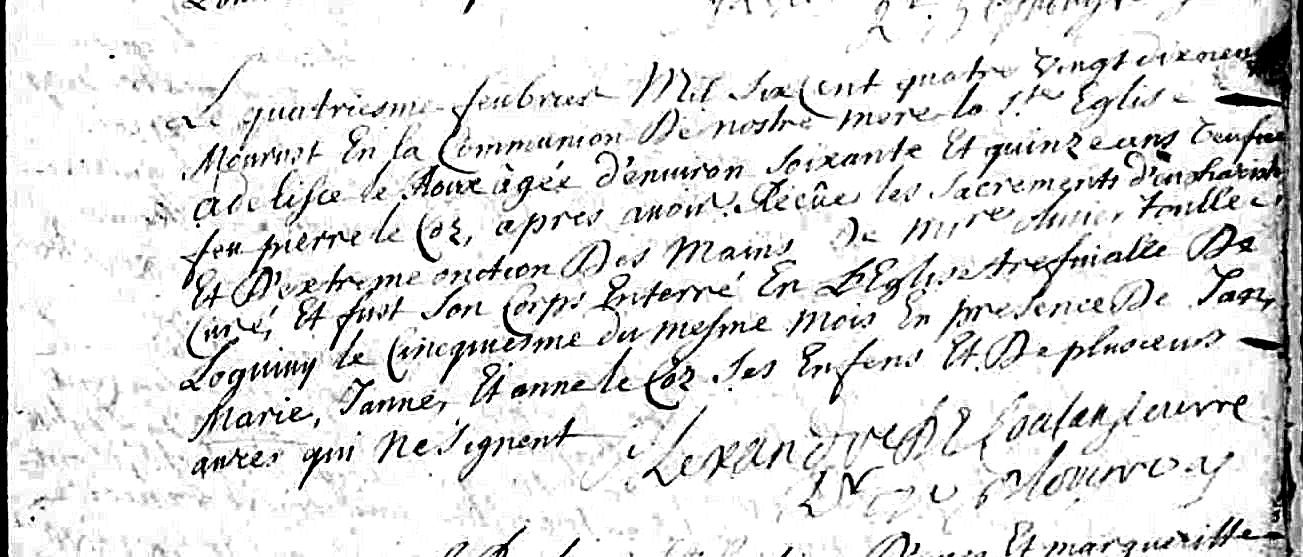 Le quatriesme feubrier Mil Six Cent quatre vingt dixneuf
Mourust En la Communion De nostre mere la Ste Eglise
Adelisce le Roux àgée d'enuiron soixante Et quinze ans Veufue
feu pierre le Coz, apres auoir Reçeüe les Sacrements
Et D'extreme onction Des Mains De Mire oliuier Toullec
Curé, Et fust Son Corps Enterré En L'Eglise trefuialle De
Loguiuy le Cincquiesme du mesme mois En presence De Jan,
Marie, Janne, Et anne le Coz Ses Enfens Et De plusieurs
autres qui ne signent
Et margueritte